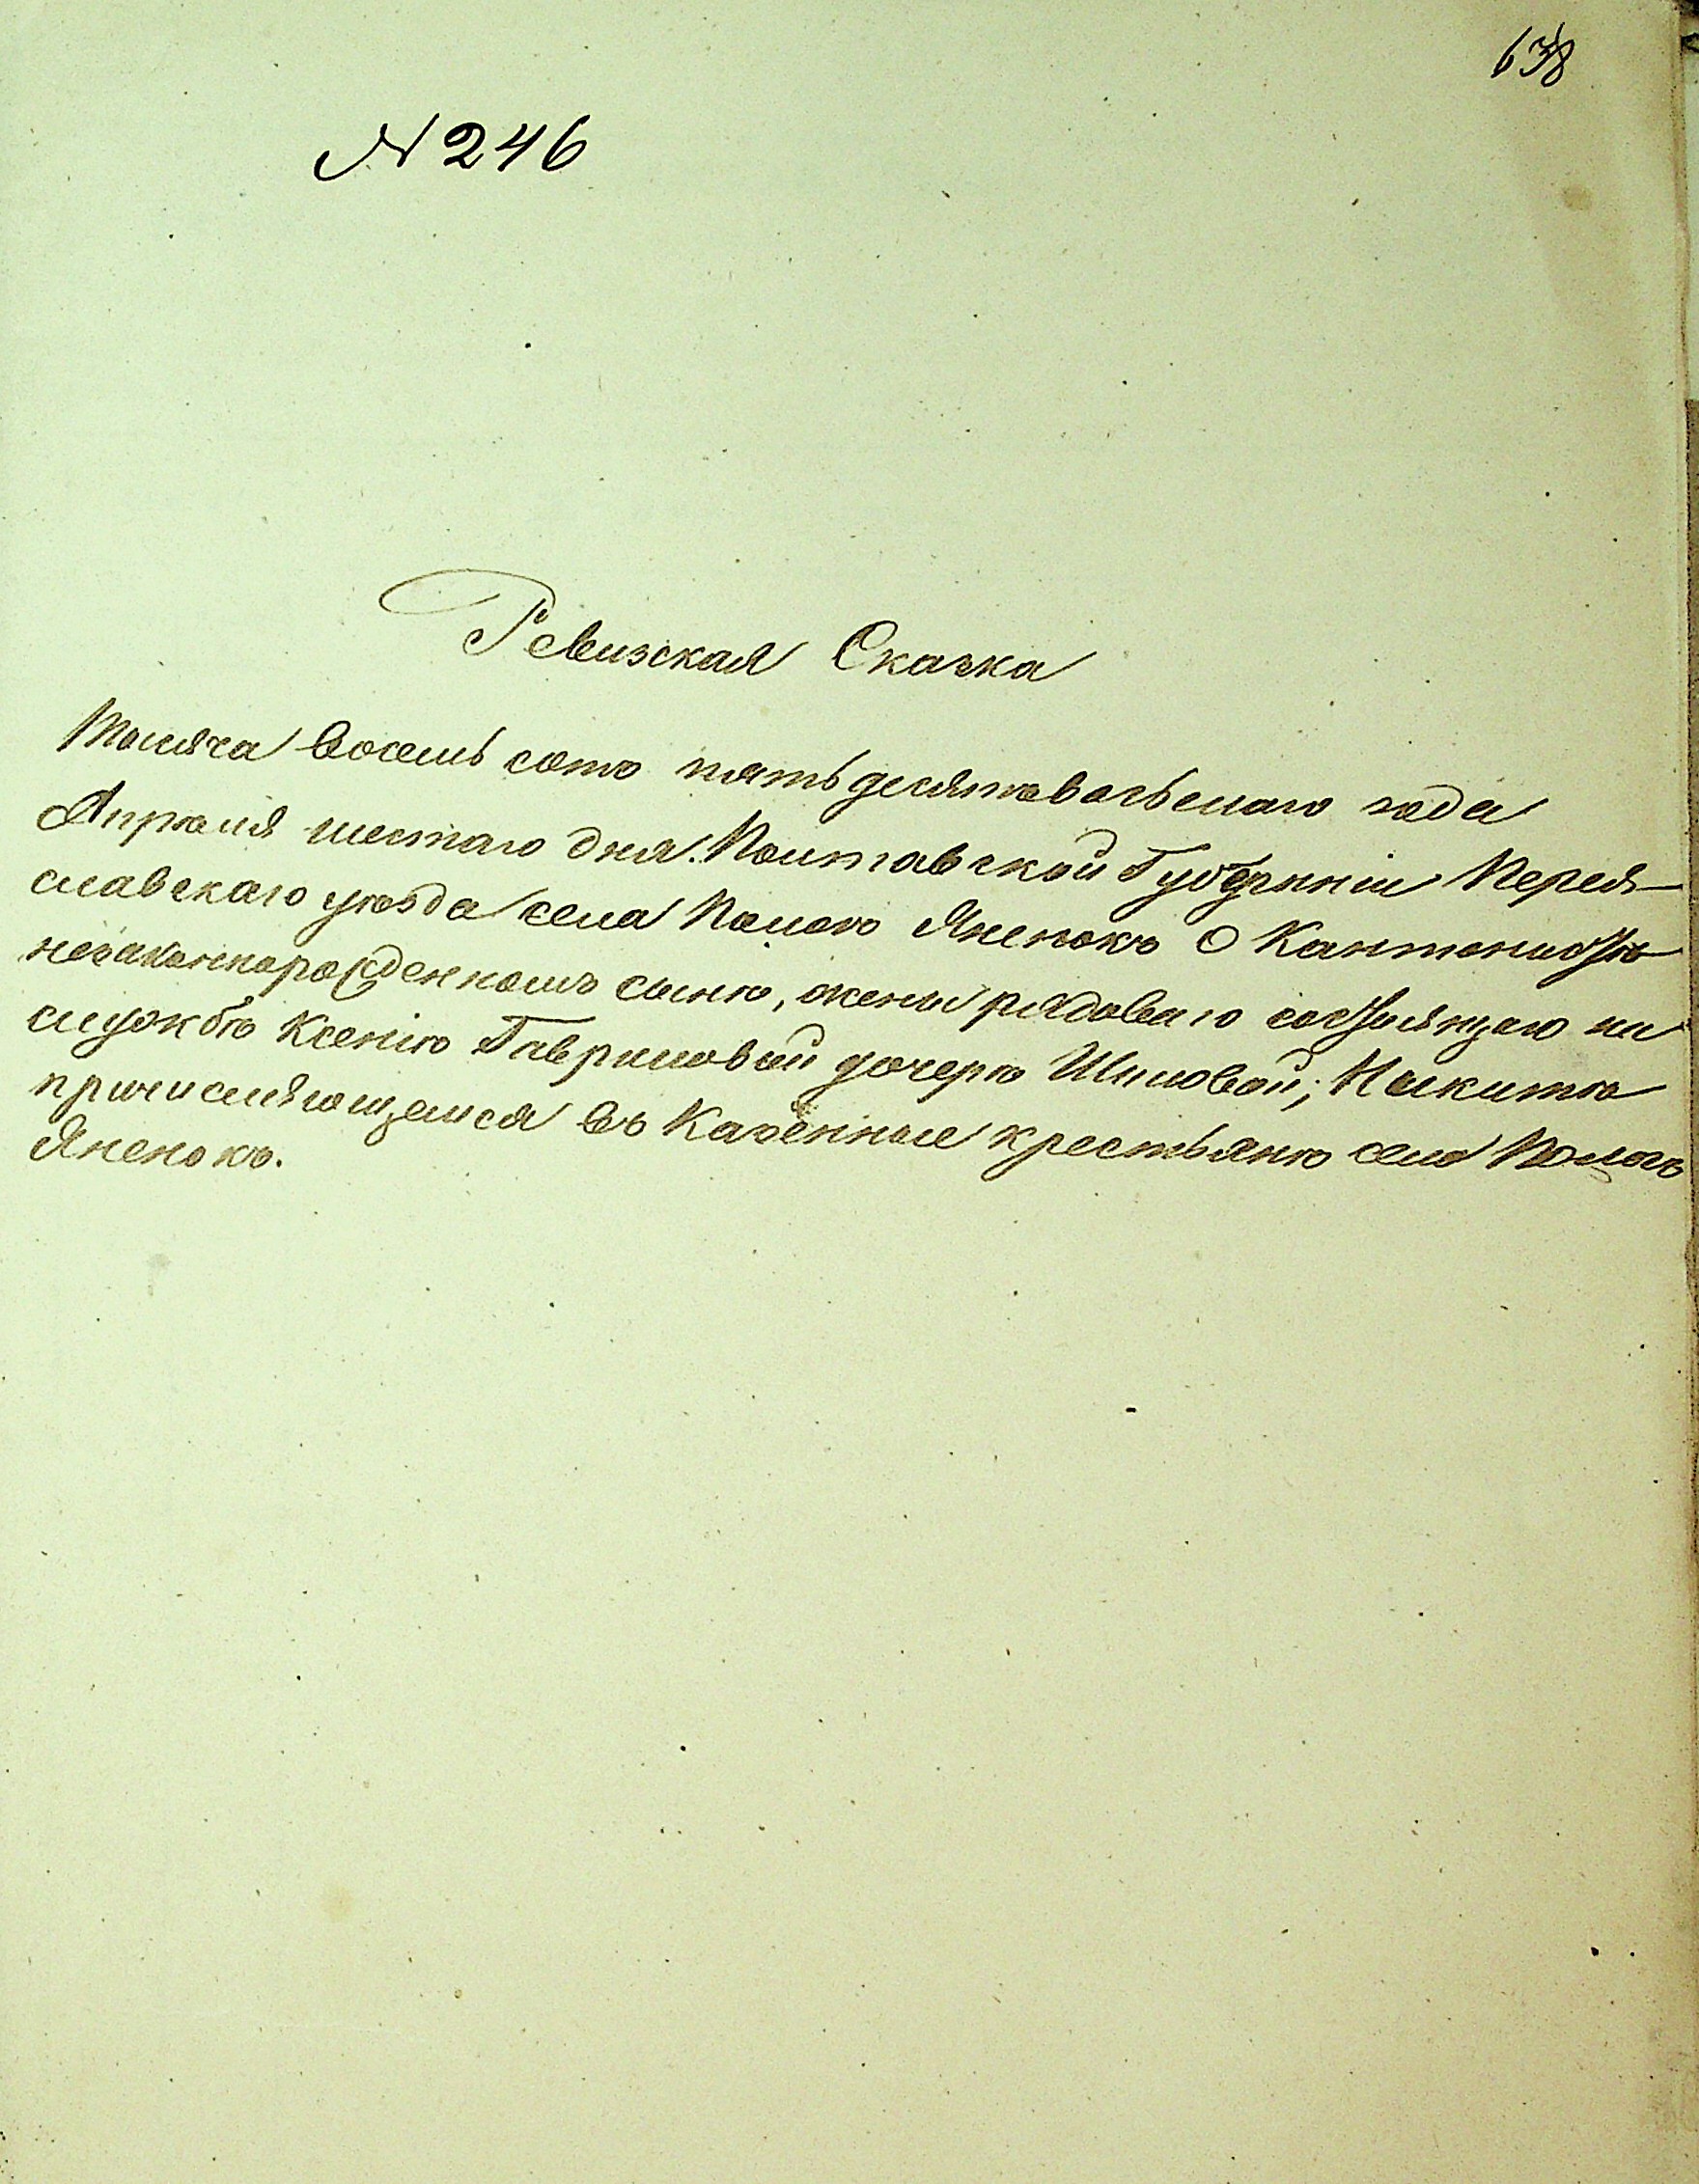 638
№ 246
Ревизская Сказка
Тысяча восемь сотъ пятьдесятовосьмаго года
Апрѣля шестаго дня. Полтавской Губерніи Перея-
славскаго уѣзда села Помокъ Яненокъ О Кантонистѣ
незаконнорожденномъ сынѣ, жены рядоваго состоящаго на
службѣ Ксеніи Гавриловой дочерѣ Шиловой; Никитѣ
причисляющемся въ Казенные крестьяне села Помокъ
Яненокъ.